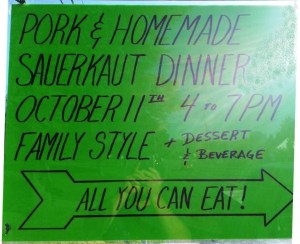 PORK & HOMEMADE
SAUERKAUT DINNER
OCTOBER 11TH 4 TO 7 PM
FAMILY STYLE + DESSERT
& BEVERAGE
ALL YOU CAN EAT!